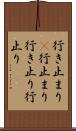 行き止まり
×行止まり
行き止り行
止り